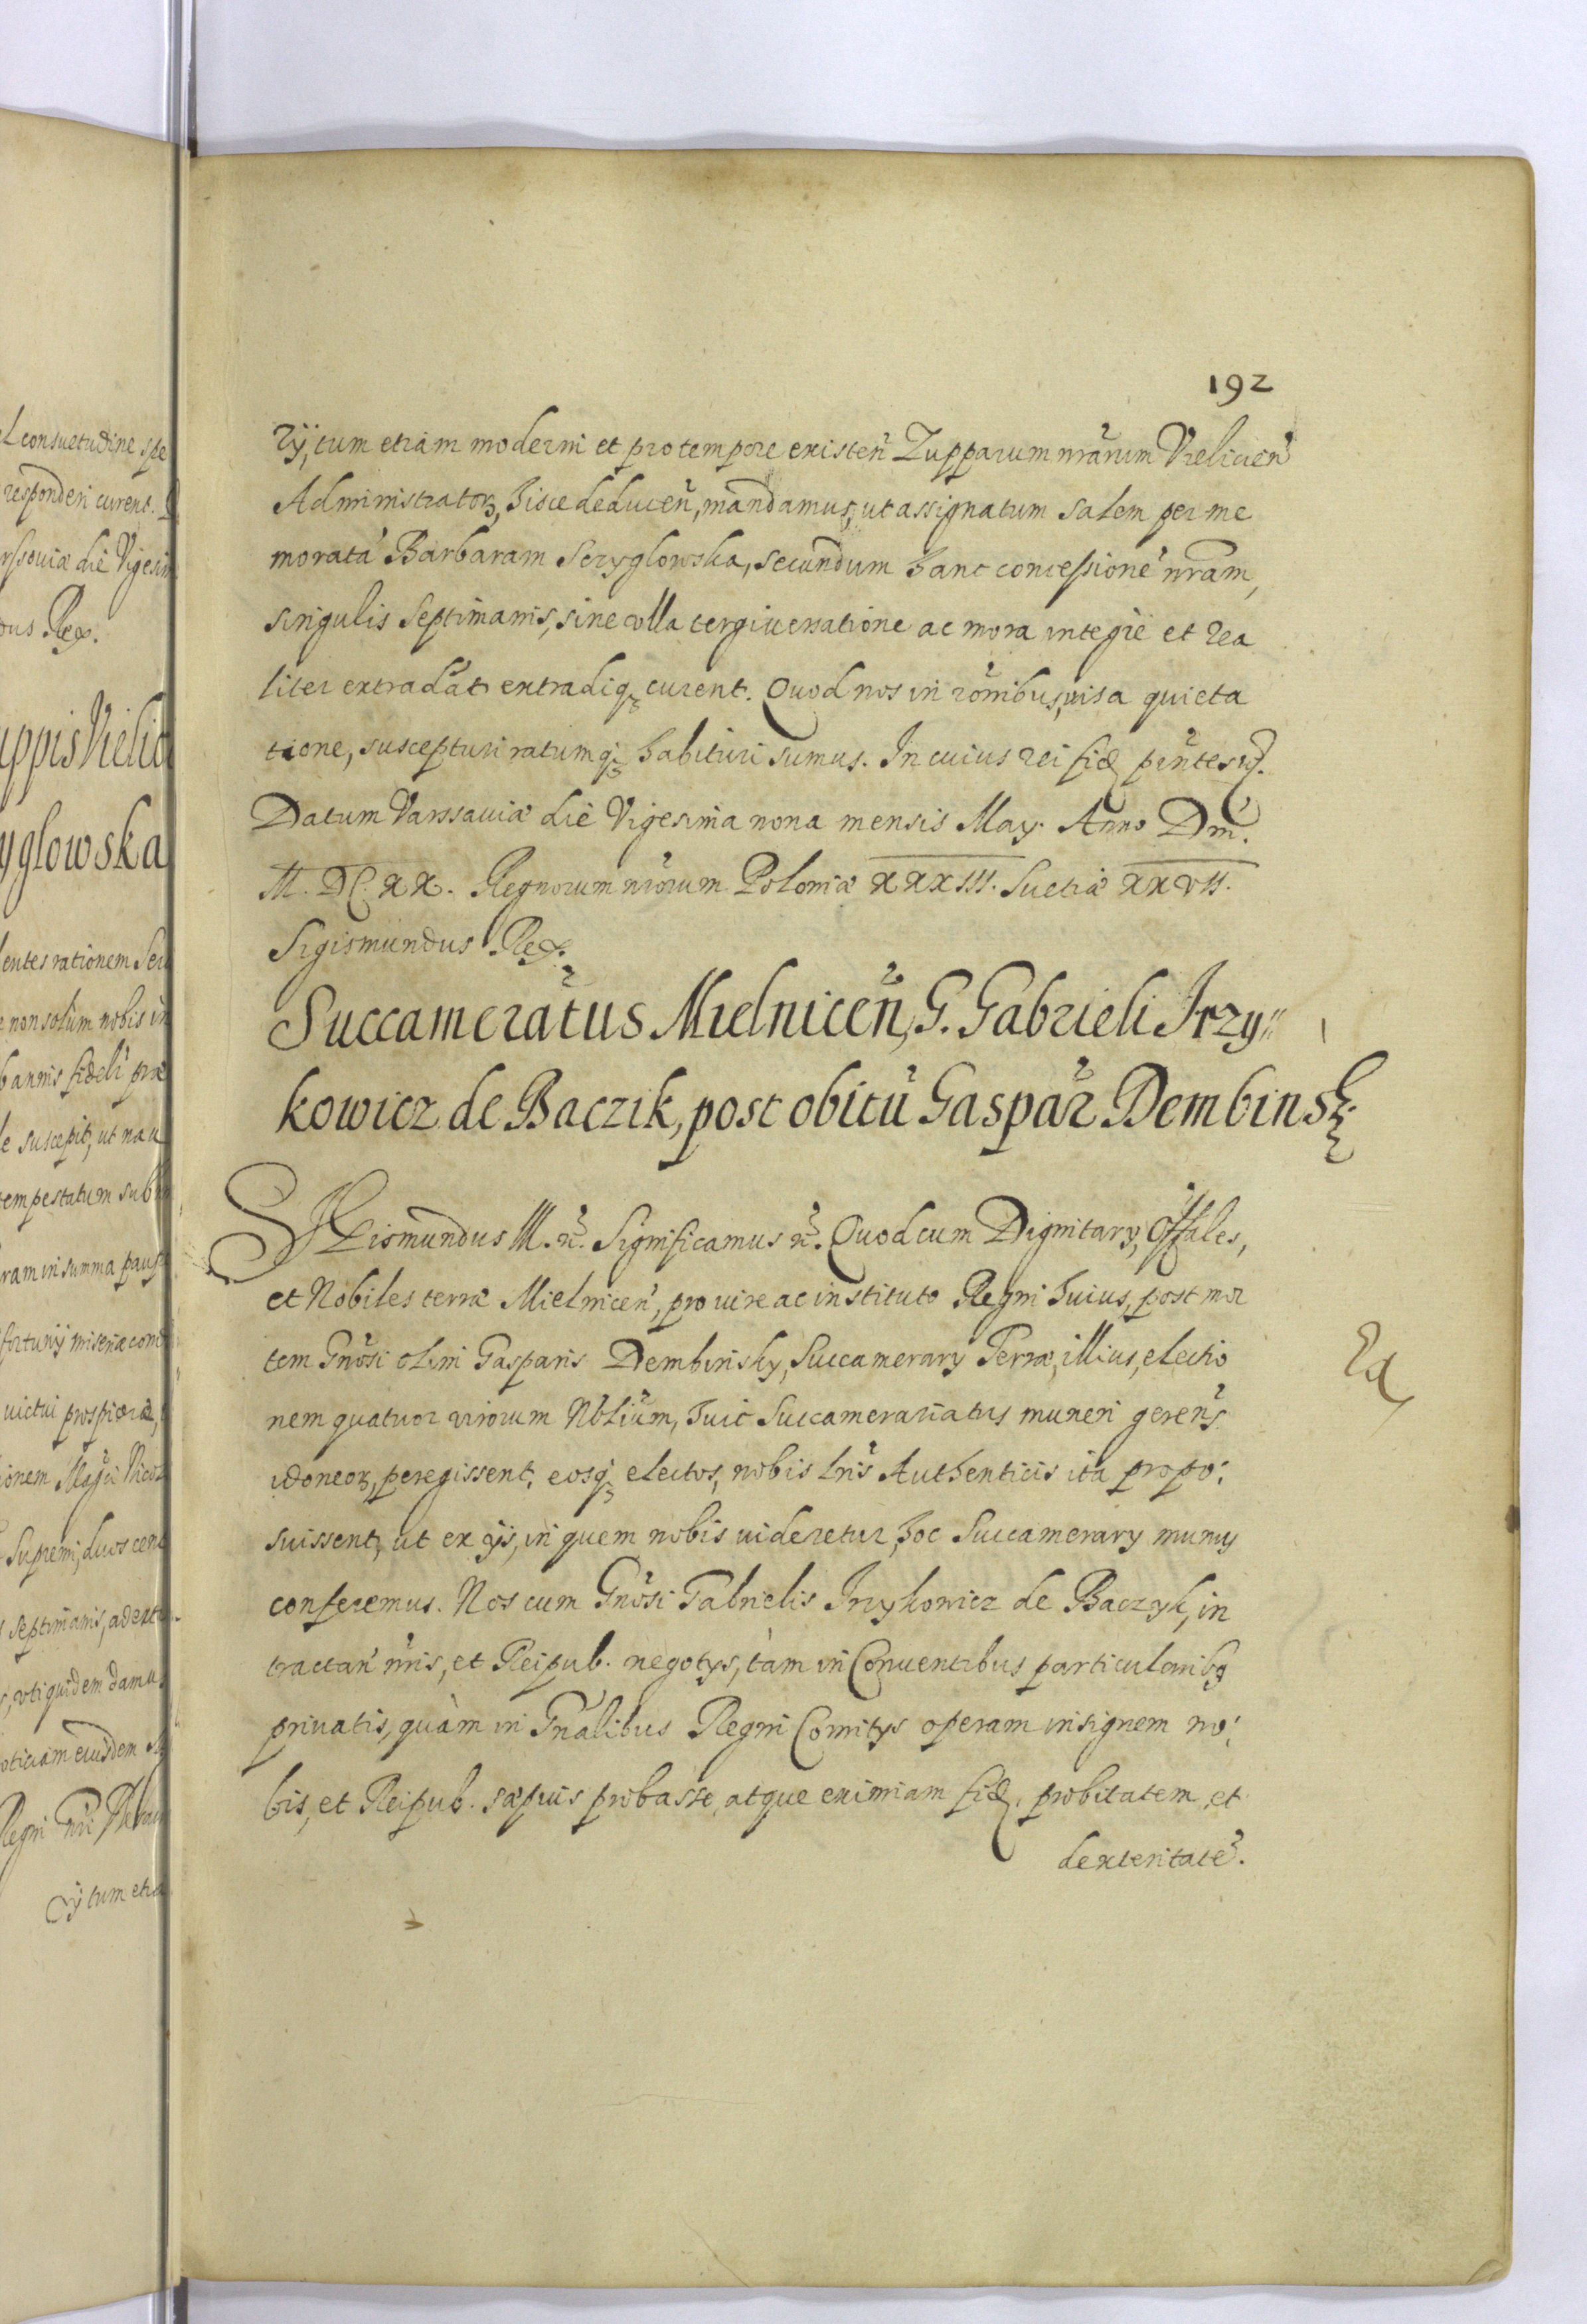 el consuetudine spe
responderi curent.
rssouiæ die Vigesim
dus Rex.
uppis Vielic
yglowska
lentes rationem Ser
e non solum nobis in
b annis fideli præ
le suscepit, ut nau
tempestatum sub
ram in summa paup
fortunij miseria com
victui prospicere,
ionem Magci Nicol
Supremi, duos cent
septimanis, ad ext
s, uti quidem damus
oticiam eiusdem
Regni nri
cij tum etia
192
rij, tum etiam moderni et pro tempore existen̄ Zupparum nrārum Vieliciēn
Administratoꝝ, hisce deducen̄, mandamus, ut assignatum salem per me
moratā Barbaram Sczyglowska, secundum hanc concessionē nrām,
singulis septimanis, sine vlla tergiuersatione ac mora integrè et rea
liter extradāt, extradiqꝫ curent. Quod nos in rōnibus, visa quieta
tione, suscepturi ratumqꝫ habituri sumus. In cuius rei fid. pn̄tes
Datum Varssauiæ die Vigesima nona mensis May. Anno Dni.
M. DC. XX. Regnorum nrōrum Poloniæ XXXIII. Suetiæ XXVII.
Sigismundus Rex.
Succamerātus Mielnicen̄, G. Gabrieli Irzy⸗
kowicz de Baczik, post obitū Gaspār Dembinsk.
SIgismundus III. n̄. Significamus n̄. Quod cum Dignitarÿ, Offales,
et Nobiles terræ Mielnicen̄, pro iure ac instituto Regni huius, post mor
tem Gnōsi olim Gasparis Dembinsky, Succamerarÿ Terræ illius, electio
nem quatuor virorum Nb̄lium, huic Succamerariatus muneri geren̄.
idoneoꝝ, peregissent, eosqꝫ electos, nobis lrīs Authenticis ita propo:
suissent, ut ex ijs, in quem nobis uideretur, hoc Succamerarÿ munus
conferemus. Nos cum Gnōsi Gabrielis Irzykowicz de Baczyk, in
tractan̄ nrīs, et Reipub. negotÿs, tàm in Conuentibus particularibꝫ
priuatis, quàm in Gn̄alibus Regni Comitÿs operam insignem no:
bis, et Reipub. sæpius probasse, atque eximiam fid. probitatem, et
dexteritatē.